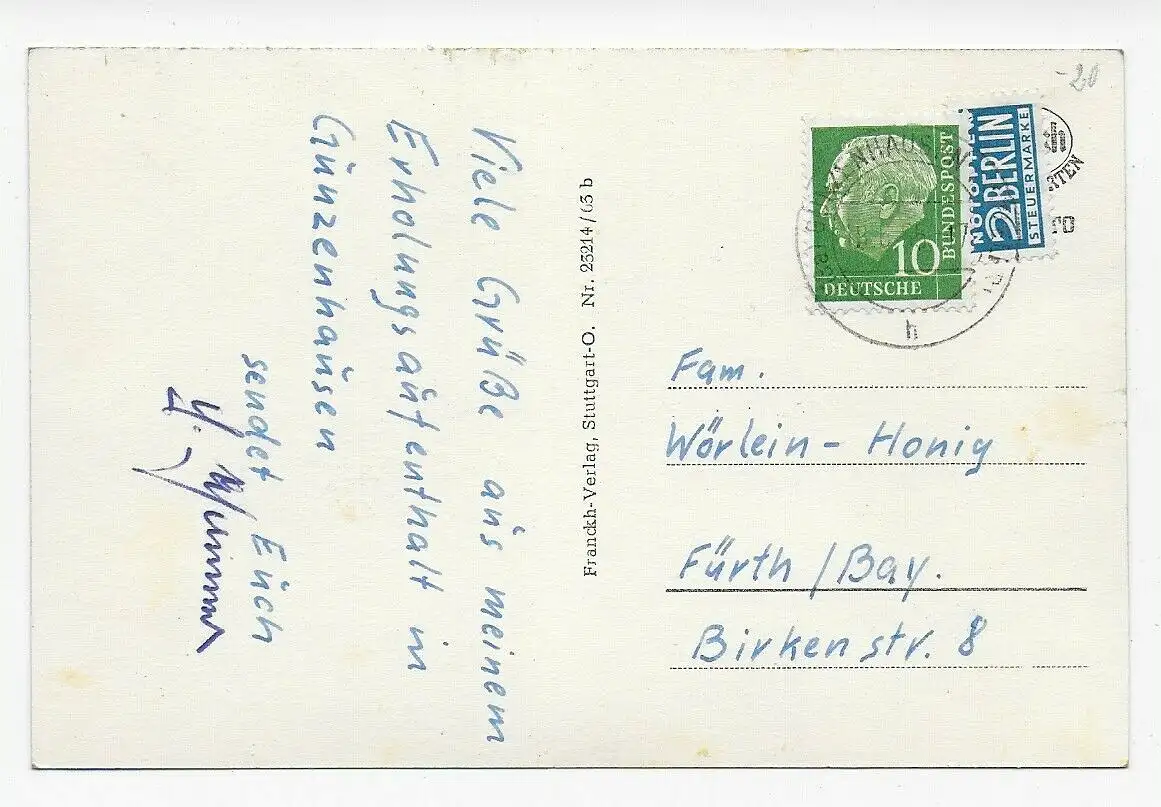 Viele Grüße aus meinem
Erholungsaufenthalt in
Günzenhausen
sendet Euch
Franckh-Verlag, Stuttgart-O. Nr. 23214/63 b
-20
10
DEUTSCHE
BUNDESPOST
NOTOPFER
2 BERLIN
STEUERMARKE
h
Fam.
Wörlein-Honig
Fürth/Bay.
Birkenstr. 8